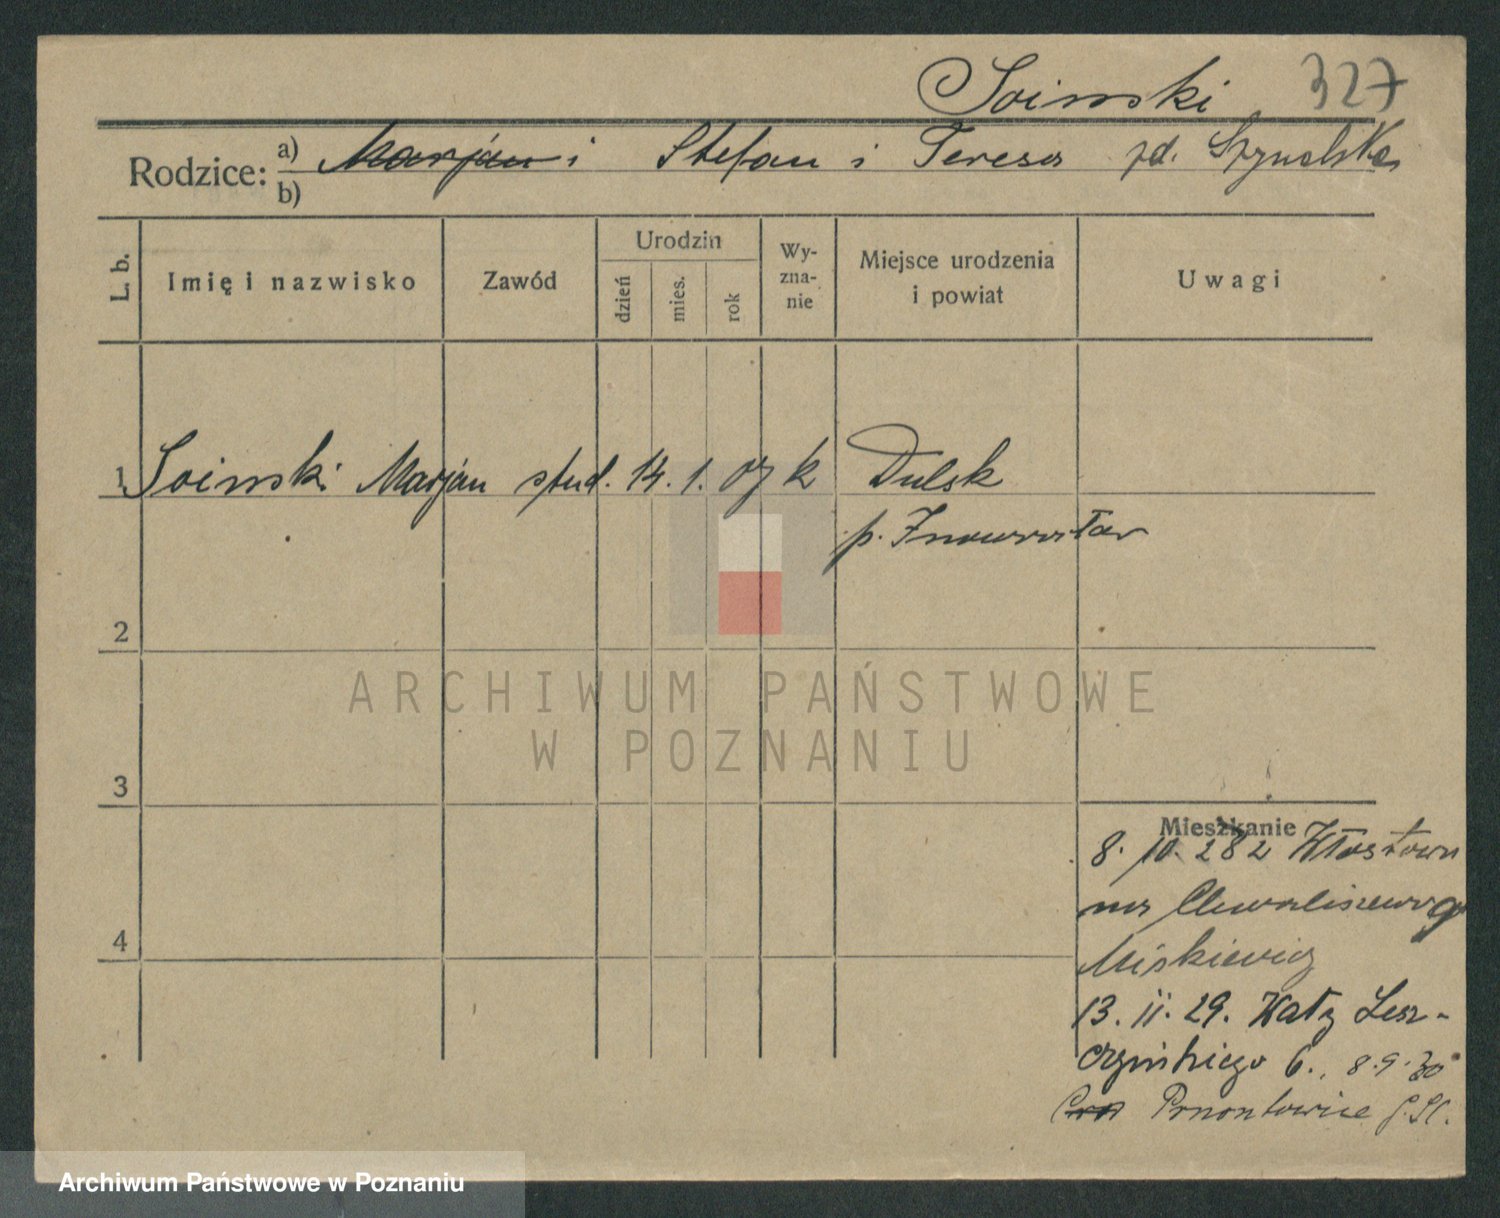 Soinski 327
Rodzice: a) Marjan i Stefan i Teresa zd.
b)
L. b.
Imię i nazwisko
Zawód
Urodzin
dzień
mies.
rok
Wy-
zna-
nie
Miejsce urodzenia
i powiat
Uwagi
1 Soinski Marjan stud. 14. 1. 07 k Dulsk
p. Inowrocław
2
ARCHIWUM PAŃSTWOWE
W POZNANIU
3
Mieszkanie
8. 10. 28 z
na
4
Miśkiewicz
13. 11. 29. Wały Lesz-
czyńskiego 6., 8.9.30
G.Śl.
Archiwum Państwowe w Poznaniu